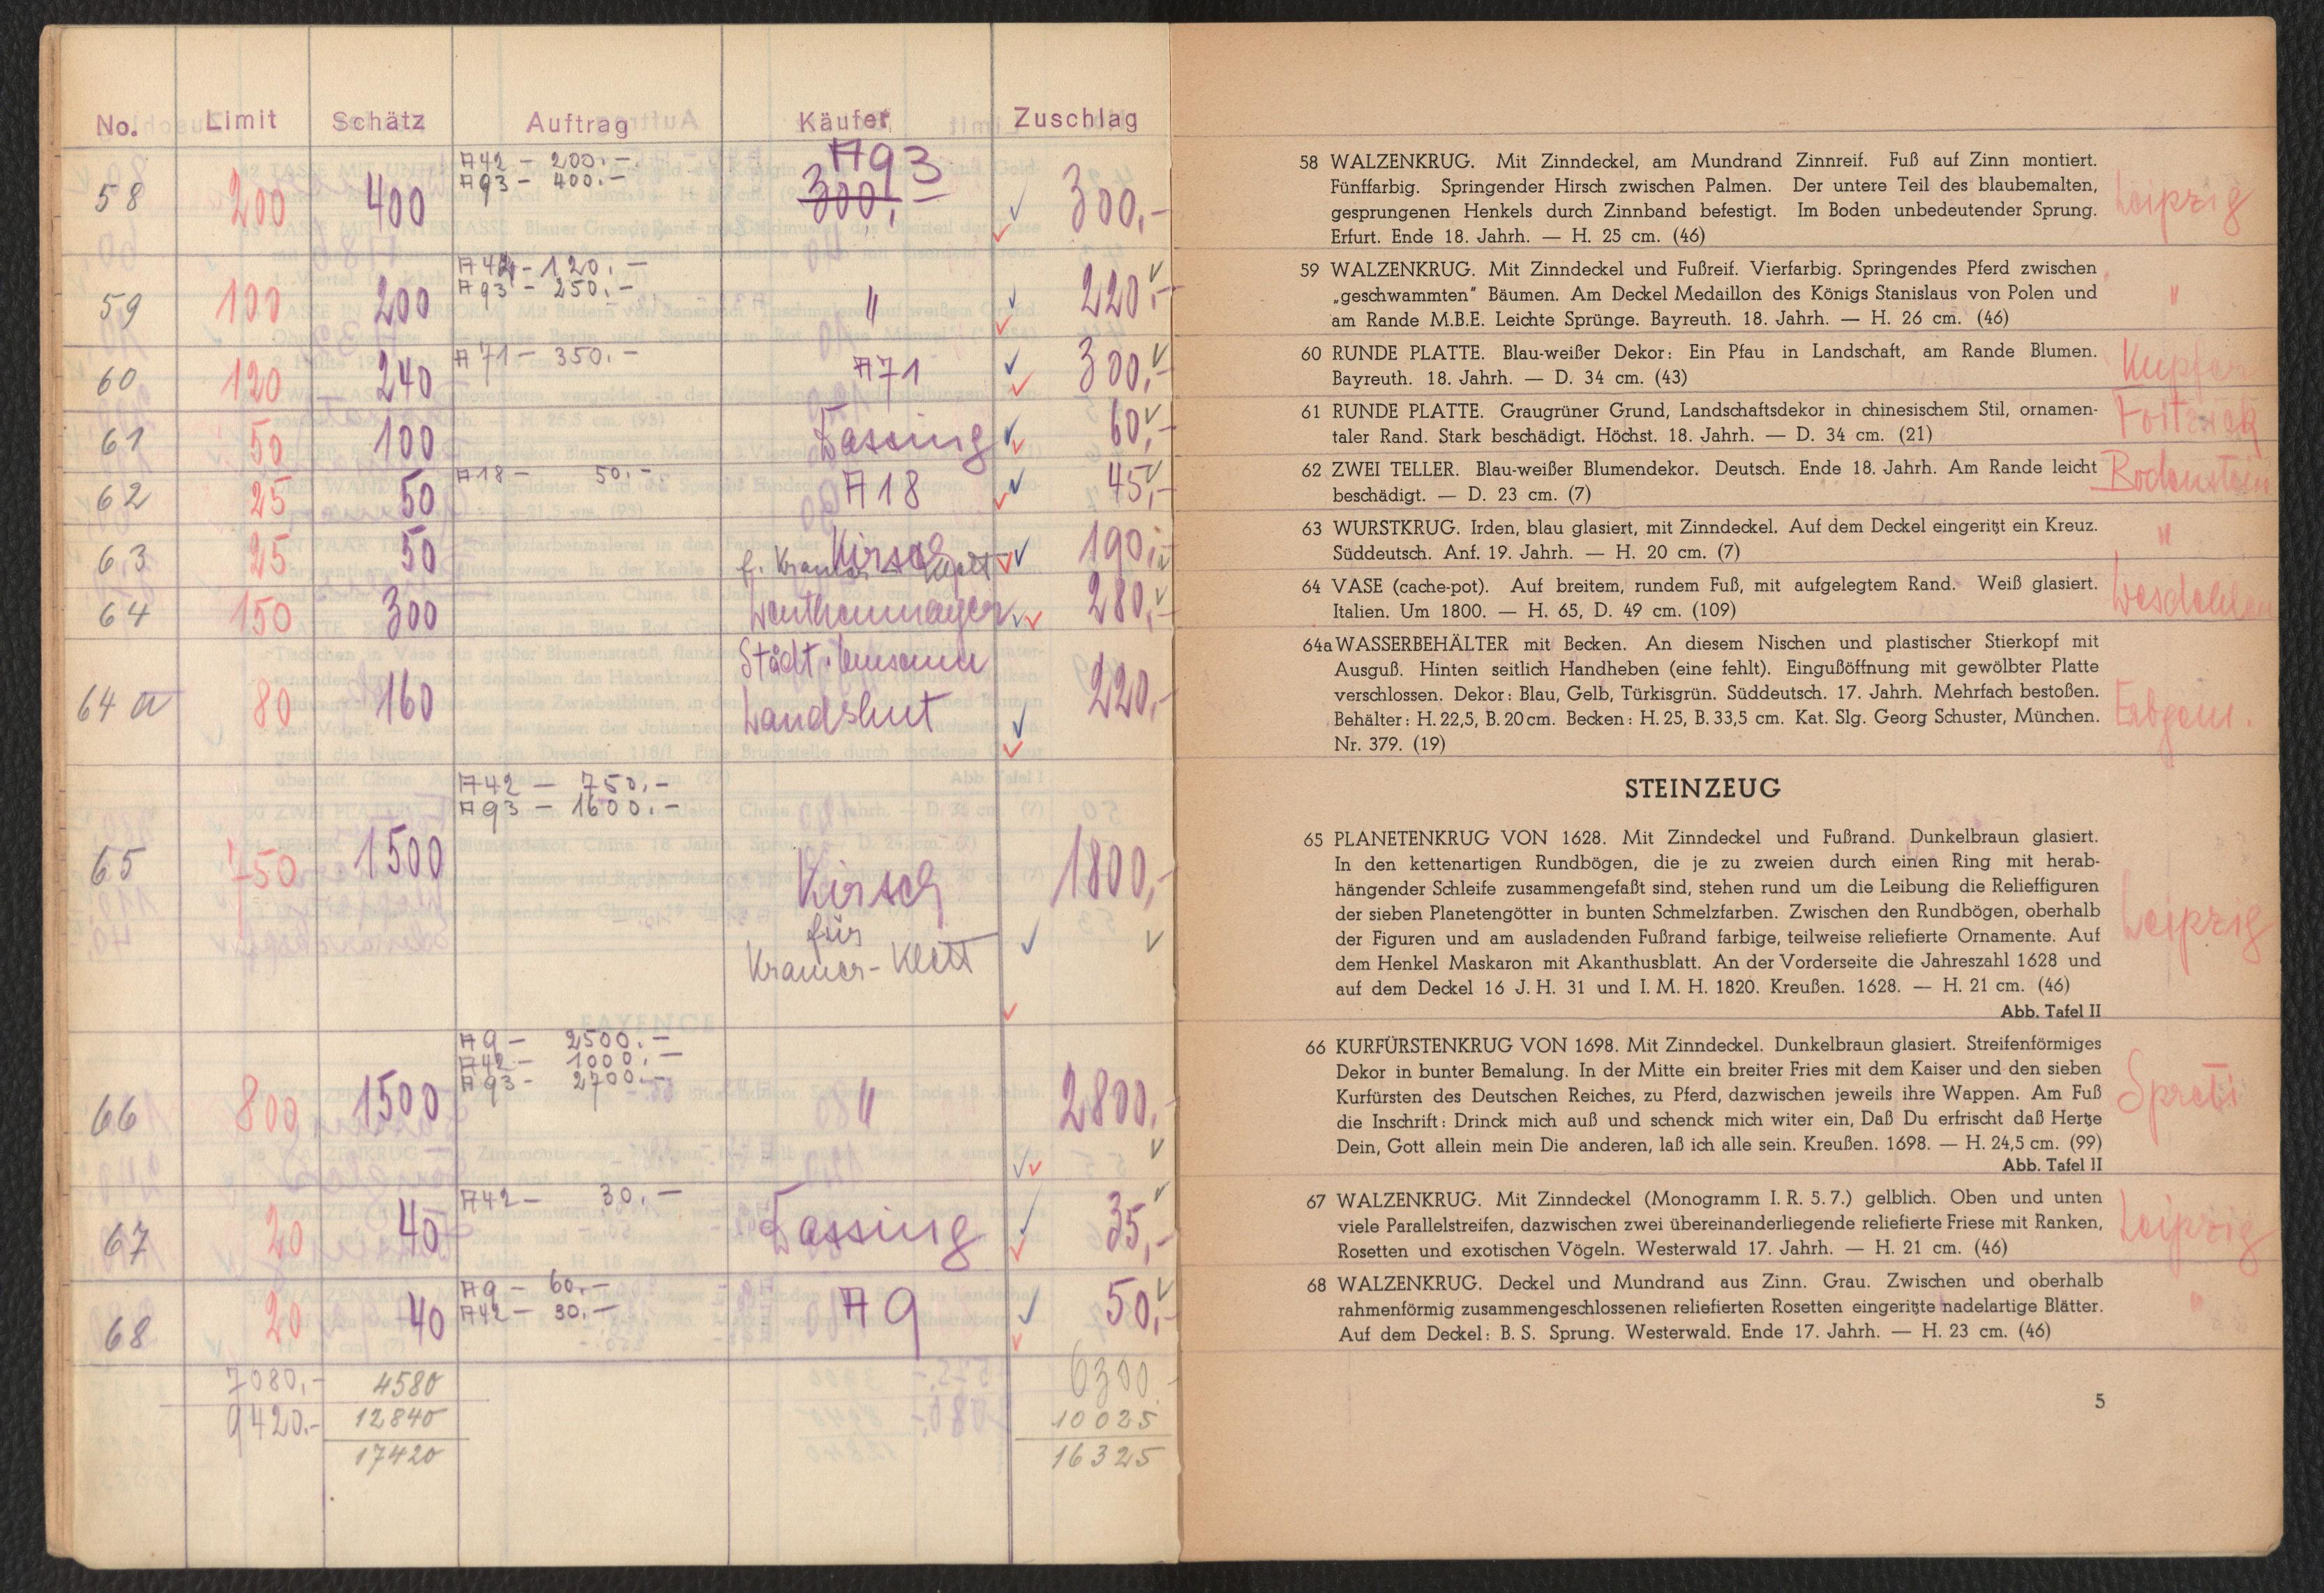 No. Limit Schätz Auftrag Käufer Zuschlag
A42 – 200.–
A93 – 400.–
A93
58 200 400 300,– 300,–
A42 – 120.–
A93 – 250.–
59 100 200 " 220,–
60 120 240 A71 – 350.– A71 300,–
61 50 100 Lassing 60,–
62 25 50 A18 – 50.– A18 45,–
63 25 50 Kirsch 190,–
f. Kramer Klett
64 150 300 Wenthenmayer 280,–
Städt. Museum
64a 80 160 Landshut 220,–
A42 – 750.–
A93 – 1600.–
65 750 1500 Kirsch 1800,–
für
Kramer-Klett
A9 – 2500.–
A42 – 1000.–
A93 – 2700.–
66 800 1500 " 2800,–
A42 – 30.–
67 20 40 Lassing 35,–
A9 – 60.–
A42 – 30.–
68 20 40 A9 50,–
7080,– 4580 6300
9420.– 12840 10025
17420 16325
58 WALZENKRUG. Mit Zinndeckel, am Mundrand Zinnreif. Fuß auf Zinn montiert.
Fünffarbig. Springender Hirsch zwischen Palmen. Der untere Teil des blaubemalten,
gesprungenen Henkels durch Zinnband befestigt. Im Boden unbedeutender Sprung.
Erfurt. Ende 18. Jahrh. — H. 25 cm. (46)
Leipzig
59 WALZENKRUG. Mit Zinndeckel und Fußreif. Vierfarbig. Springendes Pferd zwischen
„geschwammten" Bäumen. Am Deckel Medaillon des Königs Stanislaus von Polen und
am Rande M.B.E. Leichte Sprünge. Bayreuth. 18. Jahrh. — H. 26 cm. (46)
"
60 RUNDE PLATTE. Blau-weißer Dekor: Ein Pfau in Landschaft, am Rande Blumen.
Bayreuth. 18. Jahrh. — D. 34 cm. (43)
61 RUNDE PLATTE. Graugrüner Grund, Landschaftsdekor in chinesischem Stil, ornamen-
taler Rand. Stark beschädigt. Höchst. 18. Jahrh. — D. 34 cm. (21)
62 ZWEI TELLER. Blau-weißer Blumendekor. Deutsch. Ende 18. Jahrh. Am Rande leicht
beschädigt. — D. 23 cm. (7)
Bodenstein
63 WURSTKRUG. Irden, blau glasiert, mit Zinndeckel. Auf dem Deckel eingeritzt ein Kreuz.
Süddeutsch. Anf. 19. Jahrh. — H. 20 cm. (7)
"
64 VASE (cache-pot). Auf breitem, rundem Fuß, mit aufgelegtem Rand. Weiß glasiert.
Italien. Um 1800. — H. 65, D. 49 cm. (109)
64a WASSERBEHÄLTER mit Becken. An diesem Nischen und plastischer Stierkopf mit
Ausguß. Hinten seitlich Handheben (eine fehlt). Eingußöffnung mit gewölbter Platte
verschlossen. Dekor: Blau, Gelb, Türkisgrün. Süddeutsch. 17. Jahrh. Mehrfach bestoßen.
Behälter: H. 22,5, B. 20 cm. Becken: H. 25, B. 33,5 cm. Kat. Slg. Georg Schuster, München.
Nr. 379. (19)
STEINZEUG
65 PLANETENKRUG VON 1628. Mit Zinndeckel und Fußrand. Dunkelbraun glasiert.
In den kettenartigen Rundbögen, die je zu zweien durch einen Ring mit herab-
hängender Schleife zusammengefaßt sind, stehen rund um die Leibung die Relieffiguren
der sieben Planetengötter in bunten Schmelzfarben. Zwischen den Rundbögen, oberhalb
der Figuren und am ausladenden Fußrand farbige, teilweise reliefierte Ornamente. Auf
dem Henkel Maskaron mit Akanthusblatt. An der Vorderseite die Jahreszahl 1628 und
auf dem Deckel 16 J. H. 31 und I. M. H. 1820. Kreußen. 1628. — H. 21 cm. (46)
Abb. Tafel II
Leipzig
66 KURFÜRSTENKRUG VON 1698. Mit Zinndeckel. Dunkelbraun glasiert. Streifenförmiges
Dekor in bunter Bemalung. In der Mitte ein breiter Fries mit dem Kaiser und den sieben
Kurfürsten des Deutschen Reiches, zu Pferd, dazwischen jeweils ihre Wappen. Am Fuß
die Inschrift: Drinck mich auß und schenck mich witer ein, Daß Du erfrischt daß Hertze
Dein, Gott allein mein Die anderen, laß ich alle sein. Kreußen. 1698. — H. 24,5 cm. (99)
Abb. Tafel II
Spreti
67 WALZENKRUG. Mit Zinndeckel (Monogramm I. R. 5. 7.) gelblich. Oben und unten
viele Parallelstreifen, dazwischen zwei übereinanderliegende reliefierte Friese mit Ranken,
Rosetten und exotischen Vögeln. Westerwald 17. Jahrh. — H. 21 cm. (46)
Leipzig
68 WALZENKRUG. Deckel und Mundrand aus Zinn. Grau. Zwischen und oberhalb
rahmenförmig zusammengeschlossenen reliefierten Rosetten eingeritzte nadelartige Blätter.
Auf dem Deckel: B. S. Sprung. Westerwald. Ende 17. Jahrh. — H. 23 cm. (46)
"
5